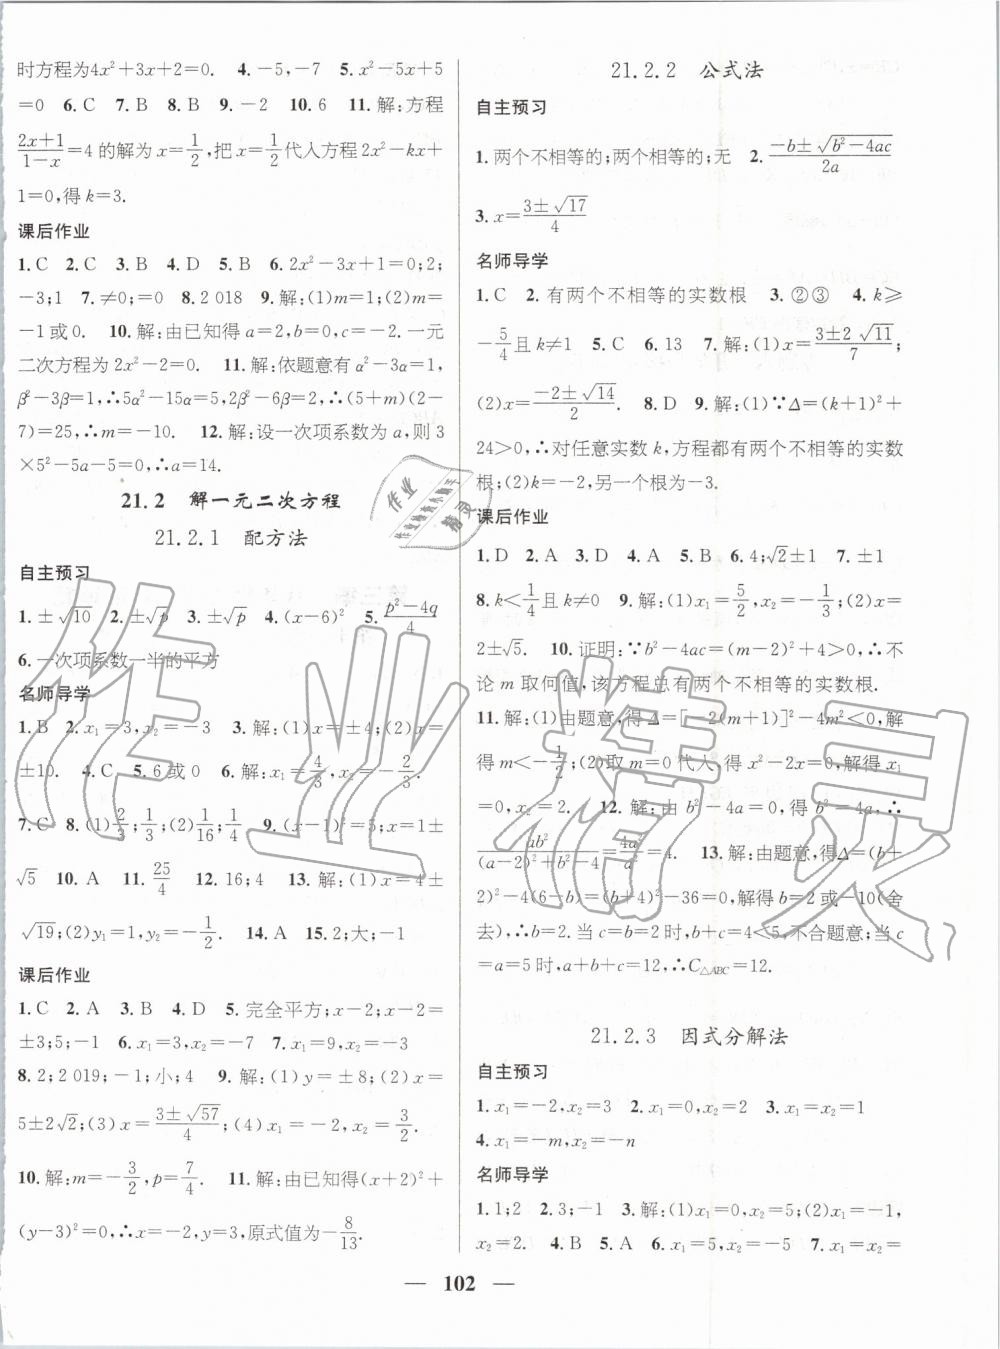 时方程为4x²+3x+2=0. 4.-5,-7 5.x²-5x+5
=0 6.C 7.B 8.B 9.-2 10.6 11.解:方程
(2x+1)/(1-x)=4的解为x=1/2,把x=1/2代入方程2x²-kx+
1=0,得k=3.
课后作业
1.C 2.C 3.B 4.D 5.B 6.2x²-3x+1=0;2;
-3;1 7.≠0;=0 8.2 018 9.解:(1)m=1;(2)m=
-1或0. 10.解:由已知得a=2,b=0,c=-2.一元
二次方程为2x²-2=0. 11.解:依题意有α²-3α=1,
β²-3β=1,∴5α²-15α=5,2β²-6β=2,∴(5+m)(2-
7)=25,∴m=-10. 12.解:设一次项系数为a,则3
×5²-5a-5=0,∴a=14.
21.2 解一元二次方程
21.2.1 配方法
自主预习
1.±√10 2.±√p 3.±√p 4.(x-6)² 5.(p²-4q)/4
6.一次项系数一半的平方
名师导学
1.B 2.x₁=3,x₂=-3 3.解:(1)x=±4;(2)x=
±10. 4.C 5.6或0 6.解:x₁=4/3,x₂=-2/3.
7.C 8.(1)2/3;1/3;(2)1/16;1/4 9.(x-1)²=5;x=1±
√5 10.A 11.25/4 12.16;4 13.解:(1)x=4±
√19;(2)y₁=1,y₂=-1/2. 14.A 15.2;大;-1
课后作业
1.C 2.A 3.B 4.D 5.完全平方;x-2;x-2=
±3;5;-1 6.x₁=3,x₂=-7 7.x₁=9,x₂=-3
8.2;2 019;-1;小;4 9.解:(1)y=±8;(2)x=
5±2√2;(3)x=(3±√57)/4;(4)x₁=-2,x₂=3/2.
10.解:m=-3/2,p=7/4. 11.解:由已知得(x+2)²+
(y-3)²=0,∴x=-2,y=3,原式值为-8/13.
21.2.2 公式法
自主预习
1.两个不相等的;两个相等的;无 2.(-b±√(b²-4ac))/2a
3.x=(3±√17)/4
名师导学
1.C 2.有两个不相等的实数根 3.②③ 4.k≥
-5/4且k≠1 5.C 6.13 7.解:(1)x=(3±2√11)/7;
(2)x=(-2±√14)/2. 8.D 9.解:(1)∵Δ=(k+1)²+
24>0,∴对任意实数k,方程都有两个不相等的实数
根;(2)k=-2,另一个根为-3.
课后作业
1.D 2.A 3.D 4.A 5.B 6.4;√2±1 7.±1
8.k<1/4且k≠0 9.解:(1)x₁=5/2,x₂=-1/3;(2)x=
2±√5. 10.证明:∵b²-4ac=(m-2)²+4>0,∴不
论m取何值,该方程总有两个不相等的实数根.
11.解:(1)由题意,得Δ=[-2(m+1)]²-4m²<0,解
得m<-1/2;(2)取m=0代入,得x²-2x=0,解得x₁
=0,x₂=2. 12.解:由b²-4a=0,得b²=4a,∴
ab²/((a-2)²+b²-4)=4a²/a²=4. 13.解:由题意,得Δ=(b+
2)²-4(6-b)=(b+4)²-36=0,解得b=2或-10(舍
去),∴b=2.当c=b=2时,b+c=4<5,不合题意;当c
=a=5时,a+b+c=12,∴C△ABC=12.
21.2.3 因式分解法
自主预习
1.x₁=-2,x₂=3 2.x₁=0,x₂=2 3.x₁=x₂=1
4.x₁=-m,x₂=-n
名师导学
1.1;2 2.3;-1 3.解:(1)x₁=0,x₂=5;(2)x₁=-1,
x₂=2. 4.B 5.A 6.x₁=5,x₂=-5 7.x₁=x₂=
— 102 —
作业精灵